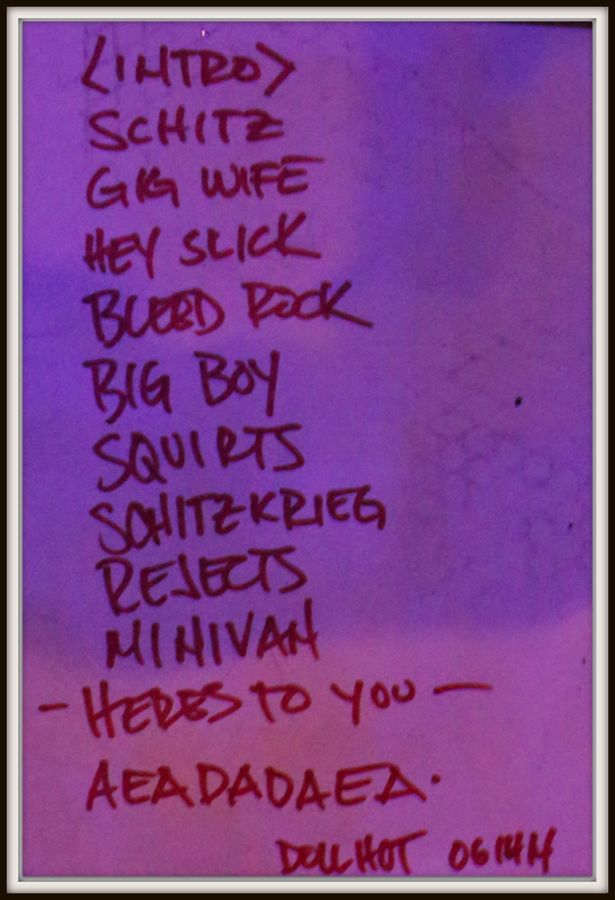 <INTRO>
SCHITZ
GIG WIFE
HEY SLICK
BLEED ROCK
BIG BOY
SQUIRTS
SCHITZKRIEG
REJECTS
MINIVAN
- HERES TO YOU -
AEADADAEA.
DOLL HUT 061414